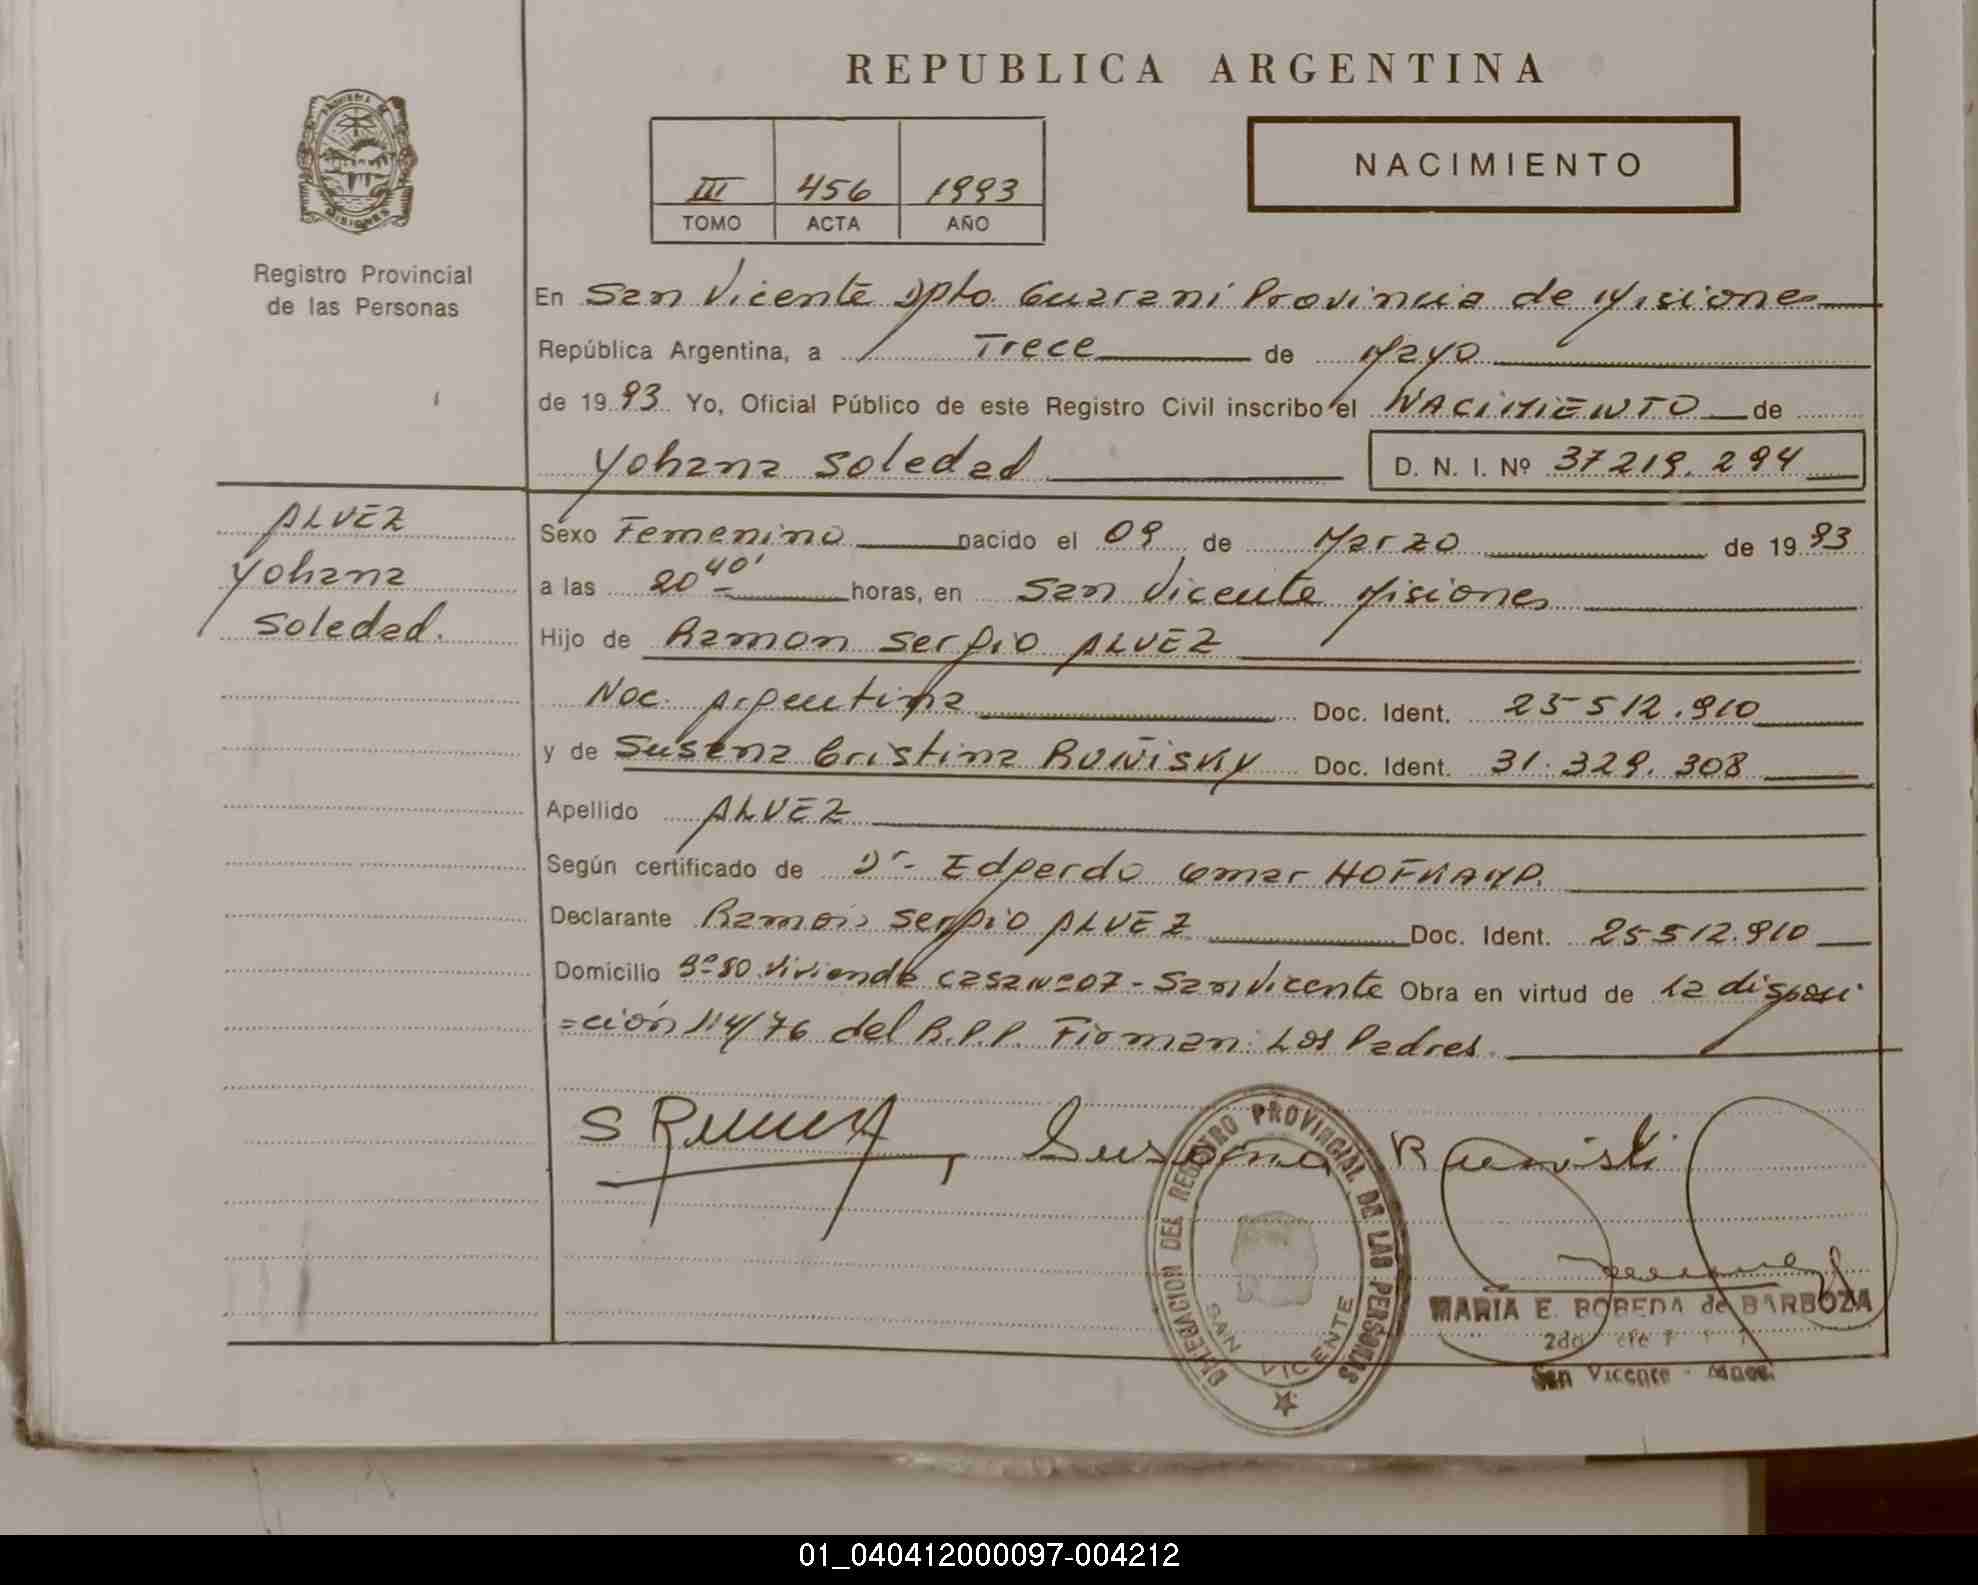 REPUBLICA ARGENTINA
PROVINCIA DE MISIONES
Registro Provincial
de las Personas
III 456 1993
TOMO ACTA AÑO
NACIMIENTO
En San Vicente Dpto. Guaraní Provincia de Misiones
República Argentina, a Trece de Mayo
de 1993 Yo, Oficial Público de este Registro Civil inscribo el NACIMIENTO de
Yohana Soledad D. N. I. Nº 37219.294
ALVEZ
Yohana
Soledad.
Sexo Femenino nacido el 09 de Marzo de 1993
a las 20 40' horas, en San Vicente Misiones
Hijo de Ramon Sergio ALVEZ
Nac. Argentina Doc. Ident. 25-512.910
y de Susana Cristina Doc. Ident. 31.329.308
Apellido ALVEZ
Según certificado de Dr- Edgardo Omar HOFKAMP.
Declarante Ramon Sergio ALVEZ Doc. Ident. 25512.910
Domicilio Bº 80 Vivienda Casa Nº 07 - San Vicente Obra en virtud de la disposi
=ción 114/76 del R.P.P. Firman: Los Padres.
Susana
DELEGACION DEL REGISTRO PROVINCIAL DE LAS PERSONAS
SAN VICENTE
MARIA E. BOBEDA de BARBOZA
2do
San Vicente - Mnes.
01_040412000097-004212